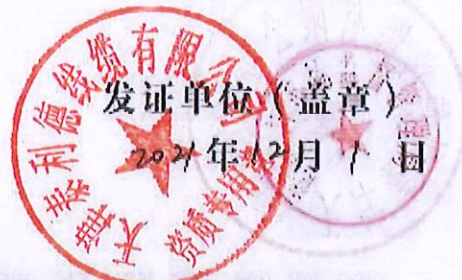 发证单位(盖章)
2021年12月1日
天津泰利信线缆有限公司
资质专用章